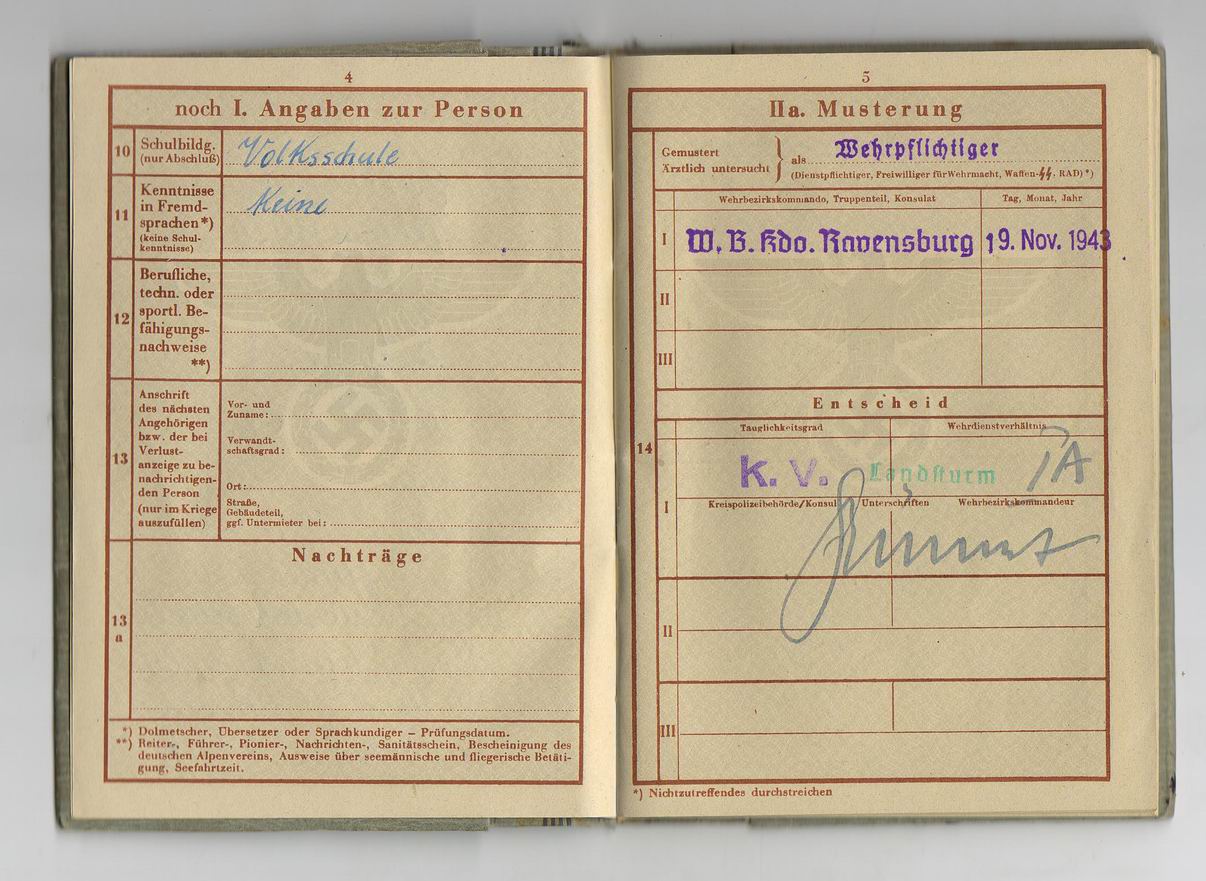 4
noch I. Angaben zur Person
10 Schulbildg.
(nur Abschluß)
Volksschule
11
Kenntnisse
in Fremd-
sprachen*)
(keine Schul-
kenntnisse)
Keine
12
Berufliche,
techn. oder
sportl. Be-
fähigungs-
nachweise
**)
13
Anschrift
des nächsten
Angehörigen
bzw. der bei
Verlust-
anzeige zu be-
nachrichtigen-
den Person
(nur im Kriege
auszufüllen)
Vor- und
Zuname:
Verwandt-
schaftsgrad:
Ort:
Straße,
Gebäudeteil,
ggf. Untermieter bei:
Nachträge
13
a
*) Dolmetscher, Übersetzer oder Sprachkundiger – Prüfungsdatum.
**) Reiter-, Führer-, Pionier-, Nachrichten-, Sanitätsschein, Bescheinigung des
deutschen Alpenvereins, Ausweise über seemännische und fliegerische Betäti-
gung, Seefahrtzeit.
5
IIa. Musterung
Gemustert
Ärztlich untersucht
als Wehrpflichtiger
(Dienstpflichtiger, Freiwilliger für Wehrmacht, Waffen-SS, RAD)*)
14
Wehrbezirkskommando, Truppenteil, Konsulat Tag, Monat, Jahr
I W. B. Kdo. Ravensburg 19. Nov. 1943
II
III
Entscheid
Tauglichkeitsgrad Wehrdienstverhältnis
I
k. v. Landsturm
Kreispolizeibehörde/Konsul Unterschriften Wehrbezirkskommandeur
II
III
*) Nichtzutreffendes durchstreichen